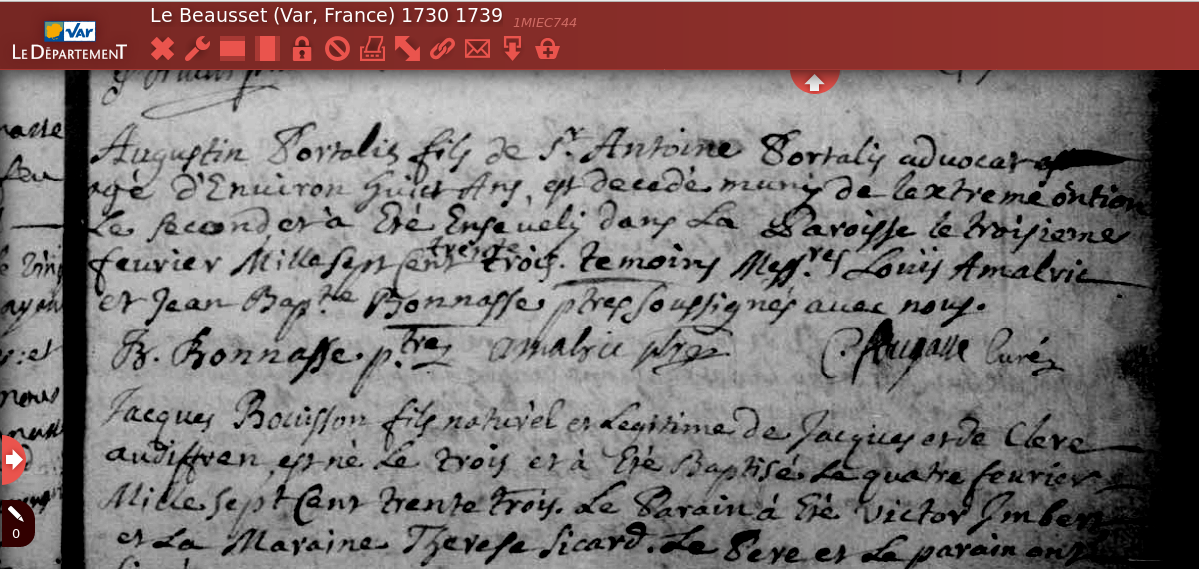 Le Beausset (Var, France) 1730 1739 1MIEC744
VAR
LE DÉPARTEMENT
Augustin Portalis fils de Sr. Antoine Portalis advocat
agé d'Environ huit Ans, est decedé muni de lextreme ontion
Le second et à Eté Enseveli dans La Paroisse le troisieme
fevrier Mille sept Cent trente trois. temoins Messres Louis Amalric
et Jean Bapte Bonnasse ptres soussignés avec nous.
B. Bonnasse ptre amalric ptre Curé
Jacques Bouisson fils naturel et Legitime de Jacques et de Clere
audiffren, est né Le trois et à Eté Baptisé Le quatre fevrier
Mille sept Cent trente trois. Le Parain à Eté victor Imbert
et La Maraine Therese Sicard. Le Pere et Le parain ont
0